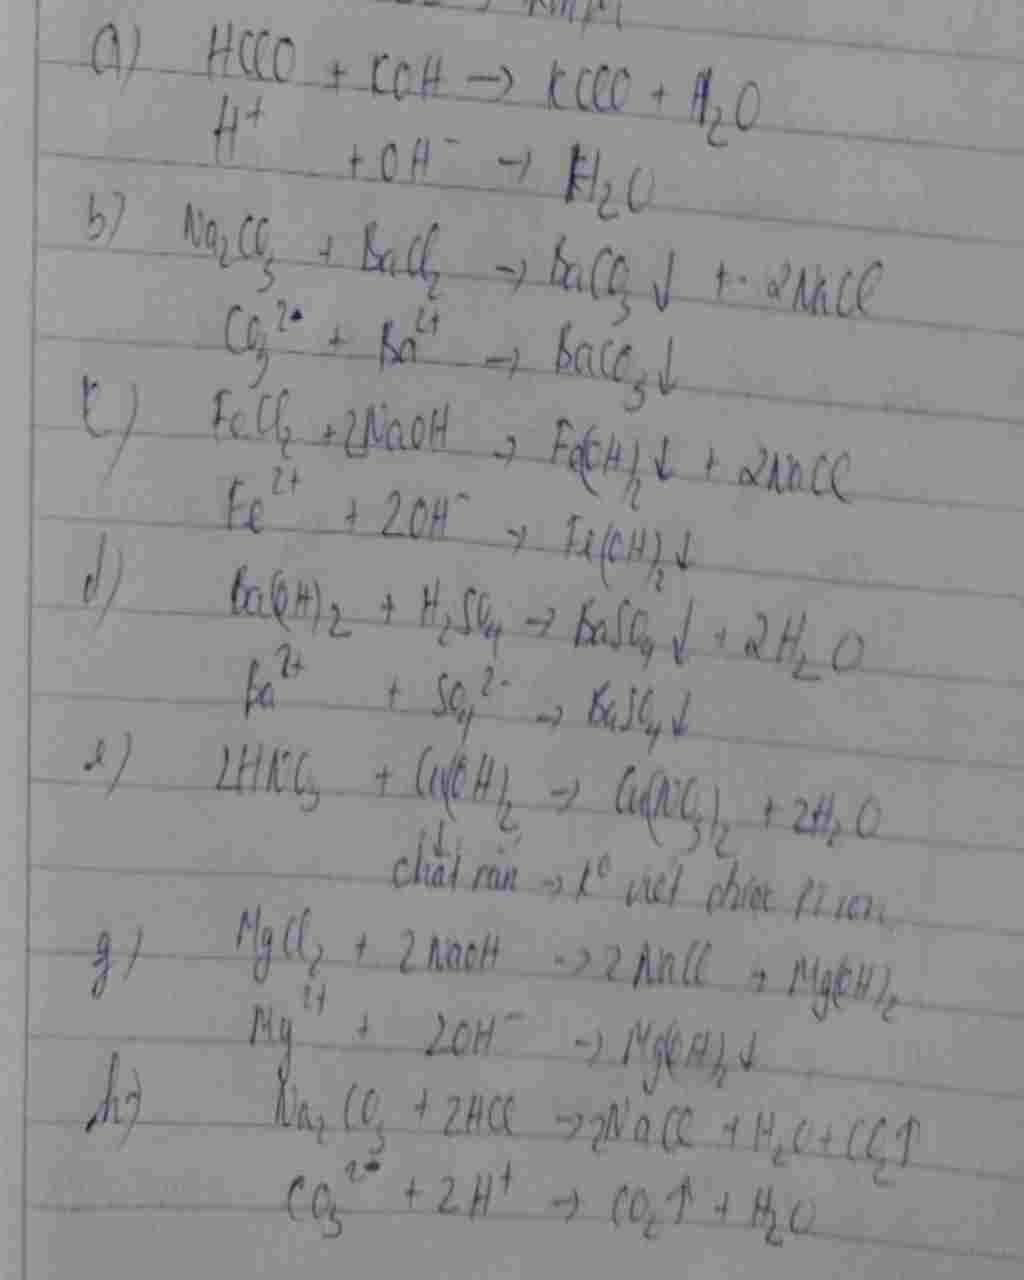 a) HClO + KOH → KClO + H₂O
H⁺ + OH⁻ → H₂O
b) Na₂CO₃ + BaCl₂ → BaCO₃↓ + 2NaCl
CO₃²⁻ + Ba²⁺ → BaCO₃↓
c) FeCl₂ + 2NaOH → Fe(OH)₂↓ + 2NaCl
Fe²⁺ + 2OH⁻ → Fe(OH)₂↓
d) Ba(OH)₂ + H₂SO₄ → BaSO₄↓ + 2H₂O
Ba²⁺ + SO₄²⁻ → BaSO₄↓
e) 2HNO₃ + Cu(OH)₂ → Cu(NO₃)₂ + 2H₂O
↓
chất rắn → k⁰ viết được PT ion
g) MgCl₂ + 2NaOH → 2NaCl + Mg(OH)₂
Mg²⁺ + 2OH⁻ → Mg(OH)₂↓
h) Na₂CO₃ + 2HCl → 2NaCl + H₂O + CO₂↑
CO₃²⁻ + 2H⁺ → CO₂↑ + H₂O